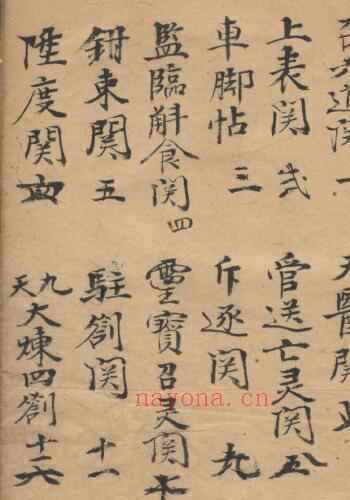 道関 一
上表関 弍
車脚帖 三
監臨斛食関 四
鉗東関 五
陞度関
天醫関
管送亡灵関 八
斥逐関 九
靈寶召灵関 十
駐劄関 十一
九天大煉四劄十二
nayona.cn